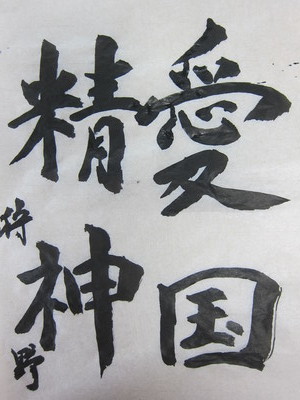 愛国
精神
将野